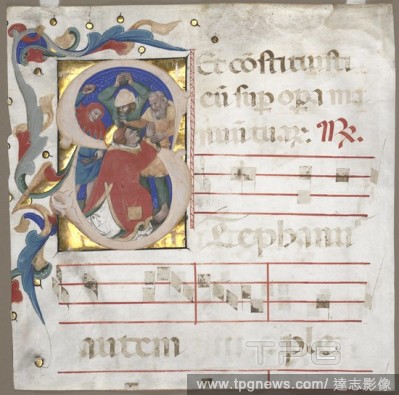 Et cōstituisti
eū sup opa ma
nuū tuaꝝ: ℟.
Stephanu
autem ple
TPG
www.tpgnews.com/ 達志影像